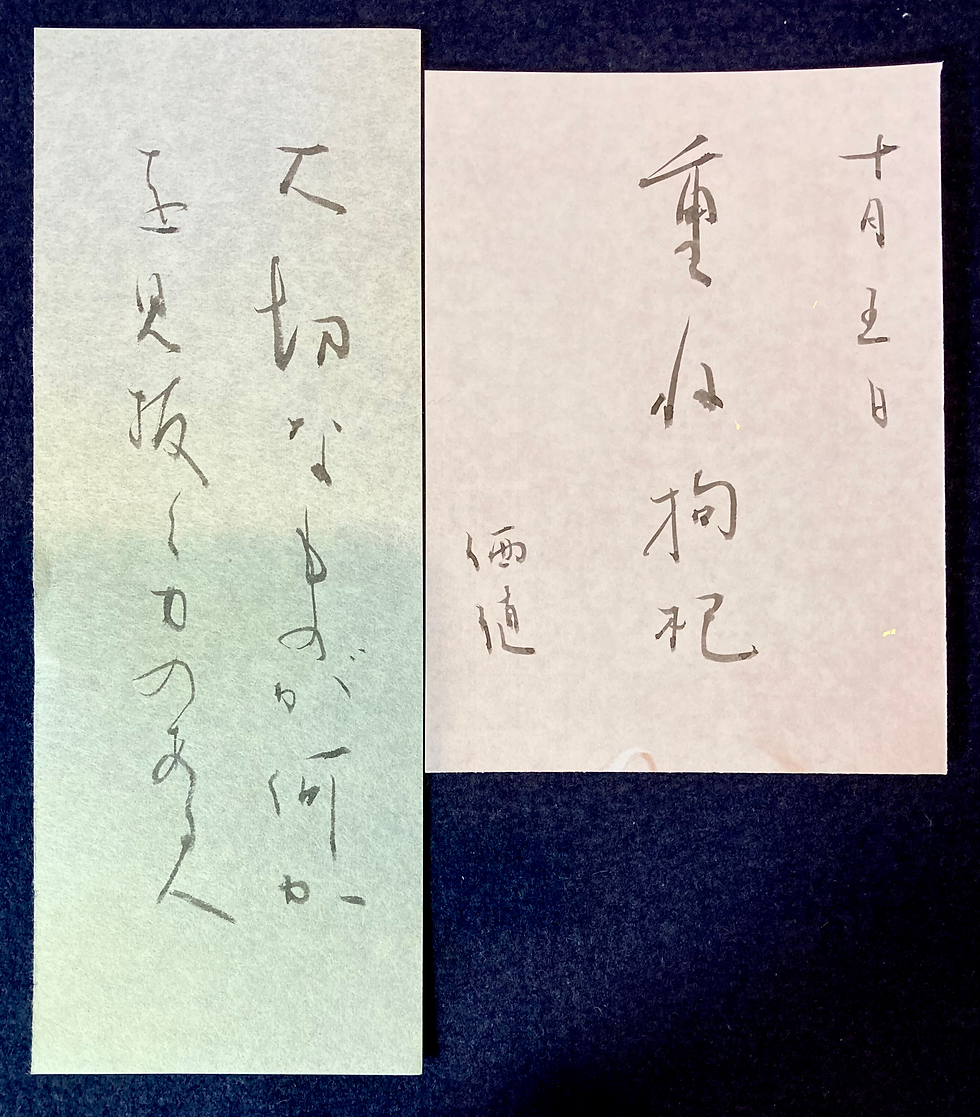 十月五日
重枸杞
価値
大切なものが何か
を見抜く力のある人